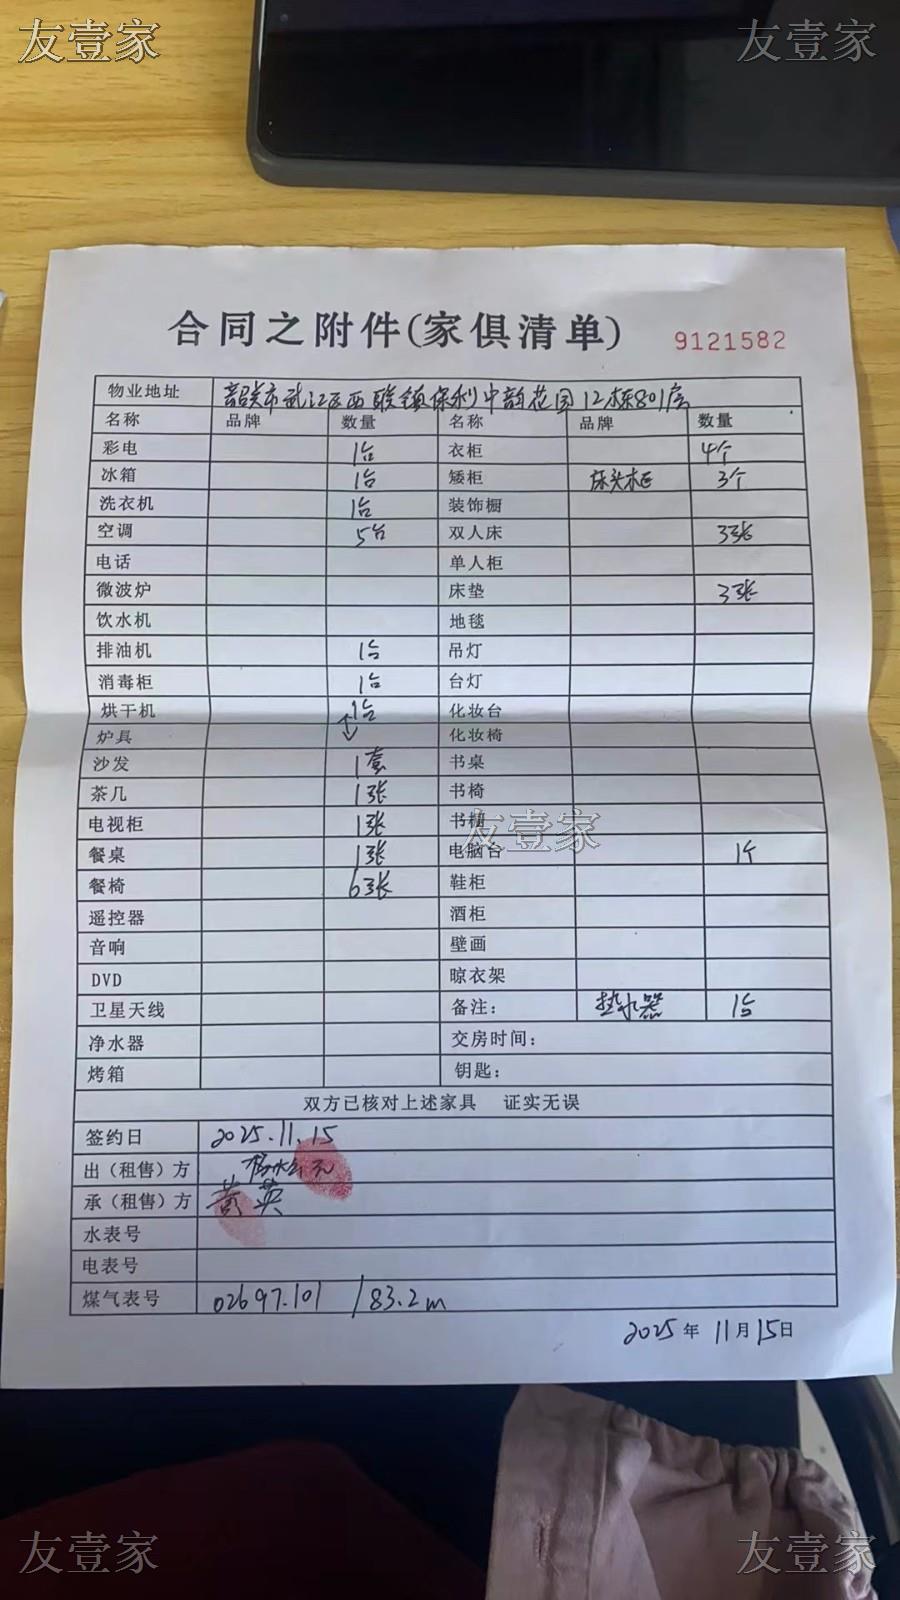 友壹家 友壹家
合同之附件(家俱清单) 9121582
物业地址 韶关市武江区西联镇保利中韵花园12栋801房
名称 品牌 数量 名称 品牌 数量
彩电 1台 衣柜 4个
冰箱 1台 矮柜 床头柜 3个
洗衣机 1台 装饰橱
空调 5台 双人床 3张
电话 单人柜
微波炉 床垫 3张
饮水机 地毯
排油机 1台 吊灯
消毒柜 1台 台灯
烘干机 1台 化妆台
炉具 化妆椅
沙发 1套 书桌
茶几 1张 书椅
电视柜 1张 书橱
友壹家
餐桌 1张 电脑台 1个
餐椅 6张 鞋柜
遥控器 酒柜
音响 壁画
DVD 晾衣架
卫星天线 备注: 热水器 1台
净水器 交房时间:
烤箱 钥匙:
双方已核对上述家具 证实无误
签约日 2025.11.15
出（租售）方
承（租售）方 黄英
水表号
电表号
煤气表号 02697.101 /83.2m
2025年11月15日
友壹家 友壹家